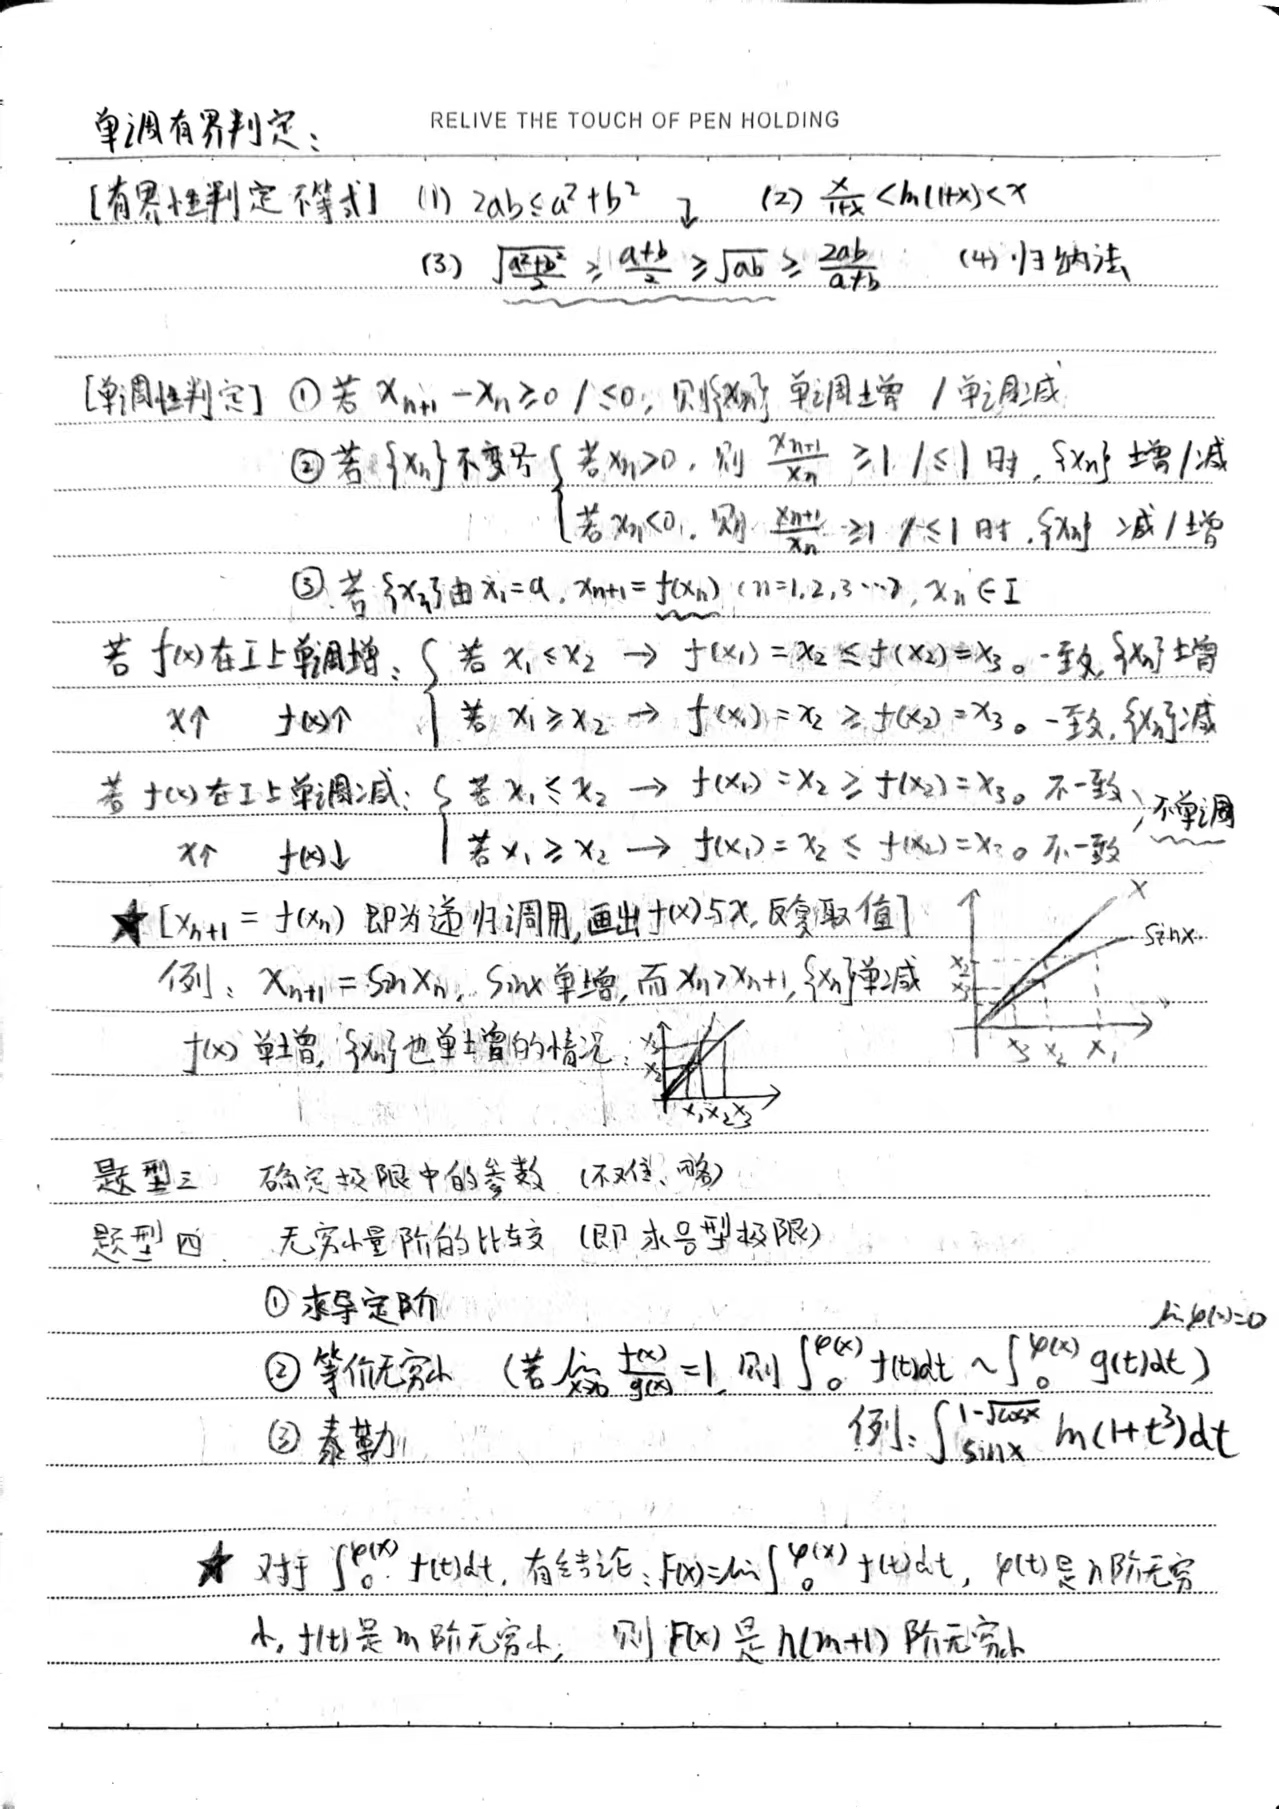 RELIVE THE TOUCH OF PEN HOLDING
单调有界判定：
[有界性判定不等式] (1) 2ab≤a²+b² (2) x/(1+x) < ln(1+x) < x
(3) √((a²+b²)/2) ≥ (a+b)/2 ≥ √ab ≥ 2ab/(a+b) (4) 归纳法
[单调性判定] ① 若 xₙ₊₁ - xₙ ≥0 / ≤0, 则{xₙ} 单调增 / 单调减
② 若 {xₙ} 不变号 { 若xₙ>0, 则 xₙ₊₁/xₙ ≥1 / ≤1 时, {xₙ} 增/减
若xₙ<0, 则 xₙ₊₁/xₙ ≥1 / ≤1 时, {xₙ} 减/增
③ 若{xₙ}由 x₁=a, xₙ₊₁=f(xₙ) (n=1,2,3…), xₙ∈I
若 f(x) 在I上单调增： { 若 x₁≤x₂ → f(x₁)=x₂≤f(x₂)=x₃。一致, {xₙ}增
x↑ f(x)↑ 若 x₁≥x₂ → f(x₁)=x₂≥f(x₂)=x₃。一致, {xₙ}减
若 f(x) 在I上单调减： { 若 x₁≤x₂ → f(x₁)=x₂≥f(x₂)=x₃。不一致, 不单调
x↑ f(x)↓ 若 x₁≥x₂ → f(x₁)=x₂≤f(x₂)=x₃。不一致
★ [xₙ₊₁=f(xₙ) 即为递归调用, 画出f(x)与x, 反复取值]
x
sinx
x₂
x₃
x₃ x₂ x₁
例：xₙ₊₁=sinxₙ, sinx单增, 而xₙ>xₙ₊₁, {xₙ}单减
f(x) 单增, {xₙ}也单增的情况：
x₃
x₂
x₁ x₂ x₃
题型三 确定极限中的参数 (不难、略)
题型四. 无穷小量阶的比较 (即求0/0型极限)
① 求导定阶
lim φ(x)=0
② 等价无穷小 (若 lim x→0 f(x)/g(x) =1, 则 ∫₀^φ(x) f(t)dt ~ ∫₀^φ(x) g(t)dt)
③ 泰勒 例：∫_sinx^(1-√cosx) ln(1+t³)dt
★ 对于 ∫₀^φ(x) f(t)dt, 有结论：F(x)=lim∫₀^φ(x) f(t)dt, φ(t)是n阶无穷
小, f(t)是m阶无穷小, 则 F(x) 是 n(m+1) 阶无穷小